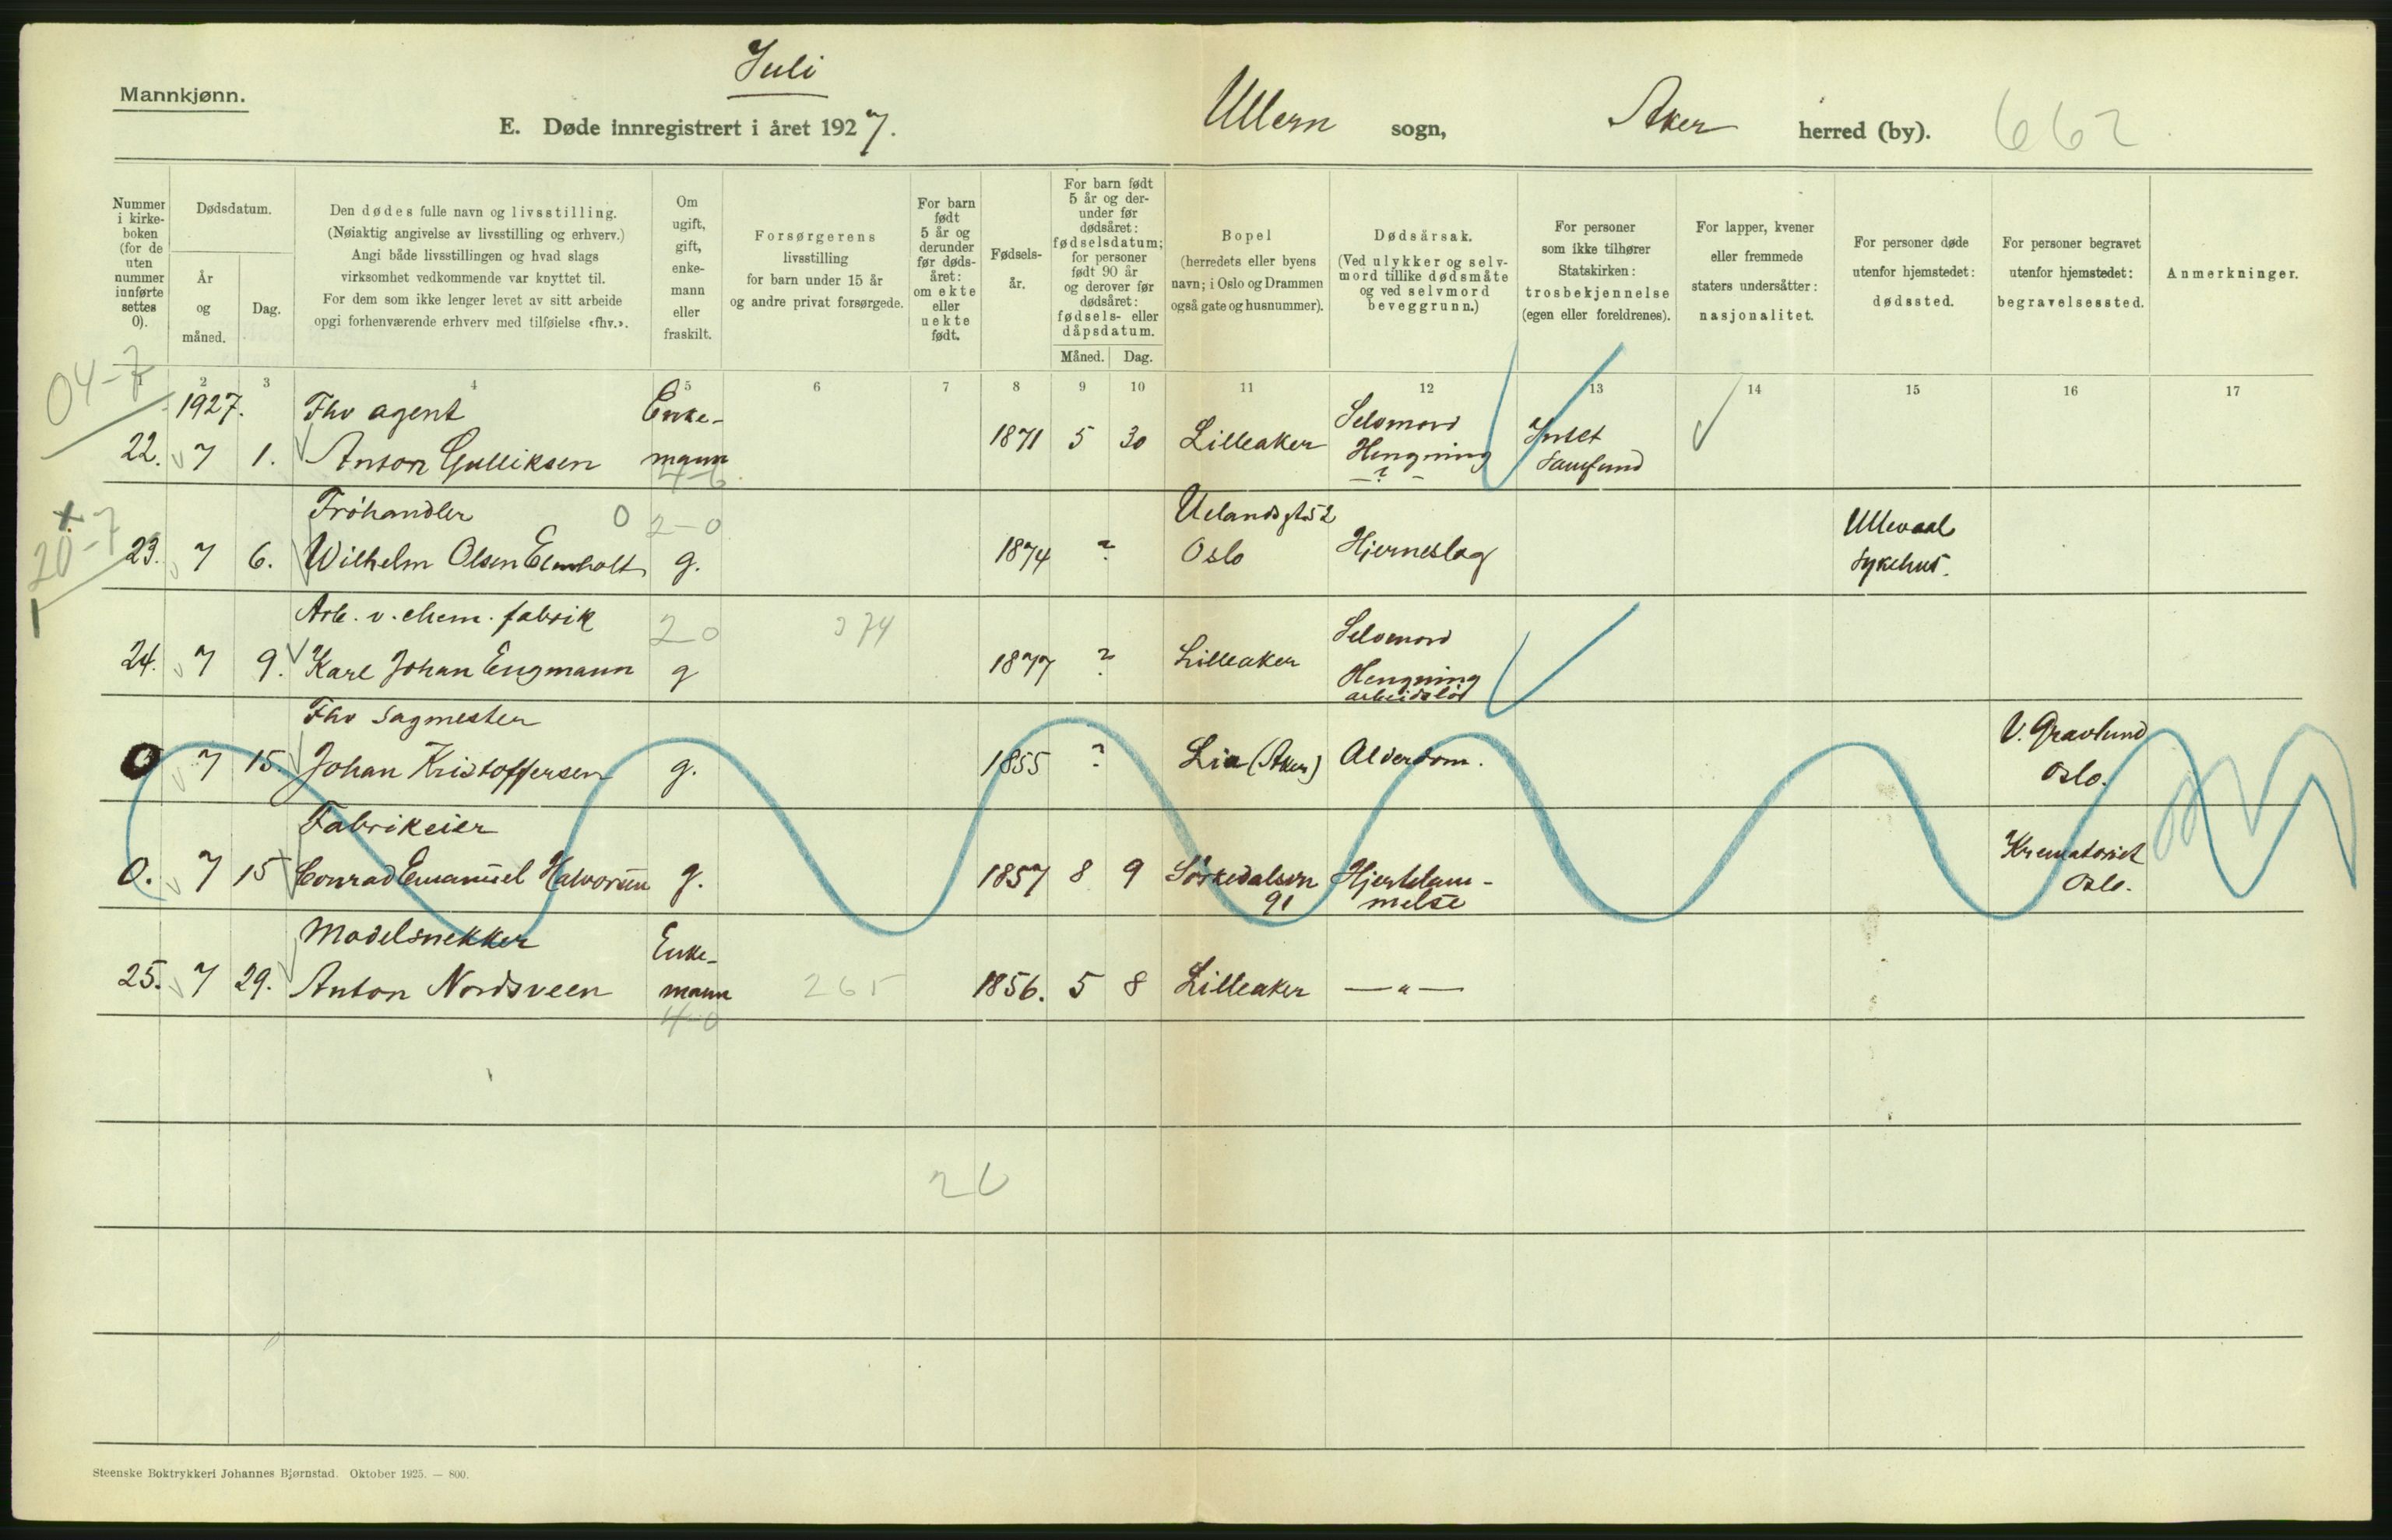 Juli
Mannkjønn.
E. Døde innregistrert i året 1927. Ullern sogn, Aker herred (by). 662
Nummer i kirke-boken (for de uten nummer innførte settes 0).
Dødsdatum.
År og måned.
Dag.
Den dødes fulle navn og livsstilling.
(Nøiaktig angivelse av livsstilling og erhverv.)
Angi både livsstillingen og hvad slags
virksomhet vedkommende var knyttet til.
For dem som ikke lenger levet av sitt arbeide
opgi forhenværende erhverv med tilføielse «fhv.».
Om ugift, gift, enke-mann eller fraskilt.
Forsørgerens
livsstilling
for barn under 15 år
og andre privat forsørgede.
For barn født 5 år og derunder før døds-året: om ekte eller uekte født.
Fødsels-år.
For barn født 5 år og der-under før dødsåret: fødselsdatum; for personer født 90 år og derover før dødsåret: fødsels- eller dåpsdatum.
Måned. Dag.
Bopel
(herredets eller byens
navn; i Oslo og Drammen
også gate og husnummer).
Dødsårsak.
(Ved ulykker og selv-
mord tillike dødsmåte
og ved selvmord
beveggrunn.)
For personer
som ikke tilhører
Statskirken:
trosbekjennelse
(egen eller foreldrenes).
For lapper, kvener
eller fremmede
staters undersåtter:
nasjonalitet.
For personer døde
utenfor hjemstedet:
dødssted.
For personer begravet
utenfor hjemstedet:
begravelsessted.
Anmerkninger.
1 2 3 4 5 6 7 8 9 10 11 12 13 14 15 16 17
04-7
1927. Fhv agent Enke- Selvmord Intet
22. 7 1. Anton Gulliksen mann 1871 5 30 Lilleaker Hengning Samfund
4-6 - ? -
Frøhandler 0 2-0 Uelandsgt 52 Ullevaal
20-7
23. 7 6. Wilhelm Olsen Elmholt g. 1874 ? Oslo Hjerneslag Sykehus.
Arb. v. chem. fabrik 20 374 Selvmord
24. 7 9. Karl Johan Engmann g 1877 ? Lilleaker Hengning
arbeidsløs
Fhv Sagmester V. Gravlund
0 7 15. Johan Kristoffersen g. 1855 ? Lia (Aker) Alderdom. Oslo.
Fabrikeier Krematoriet
0. 7 15 Conrad Emanuel Halvorsen g. 1857 8 9 Sørkedalsvn Hjertelam- Oslo.
91 melse
Modelsnekker Enke-
25. 7 29. Anton Nordsveen mann 265 1856. 5 8 Lilleaker — " —
4-0
Steenske Boktrykkeri Johannes Bjørnstad. Oktober 1925. — 800.